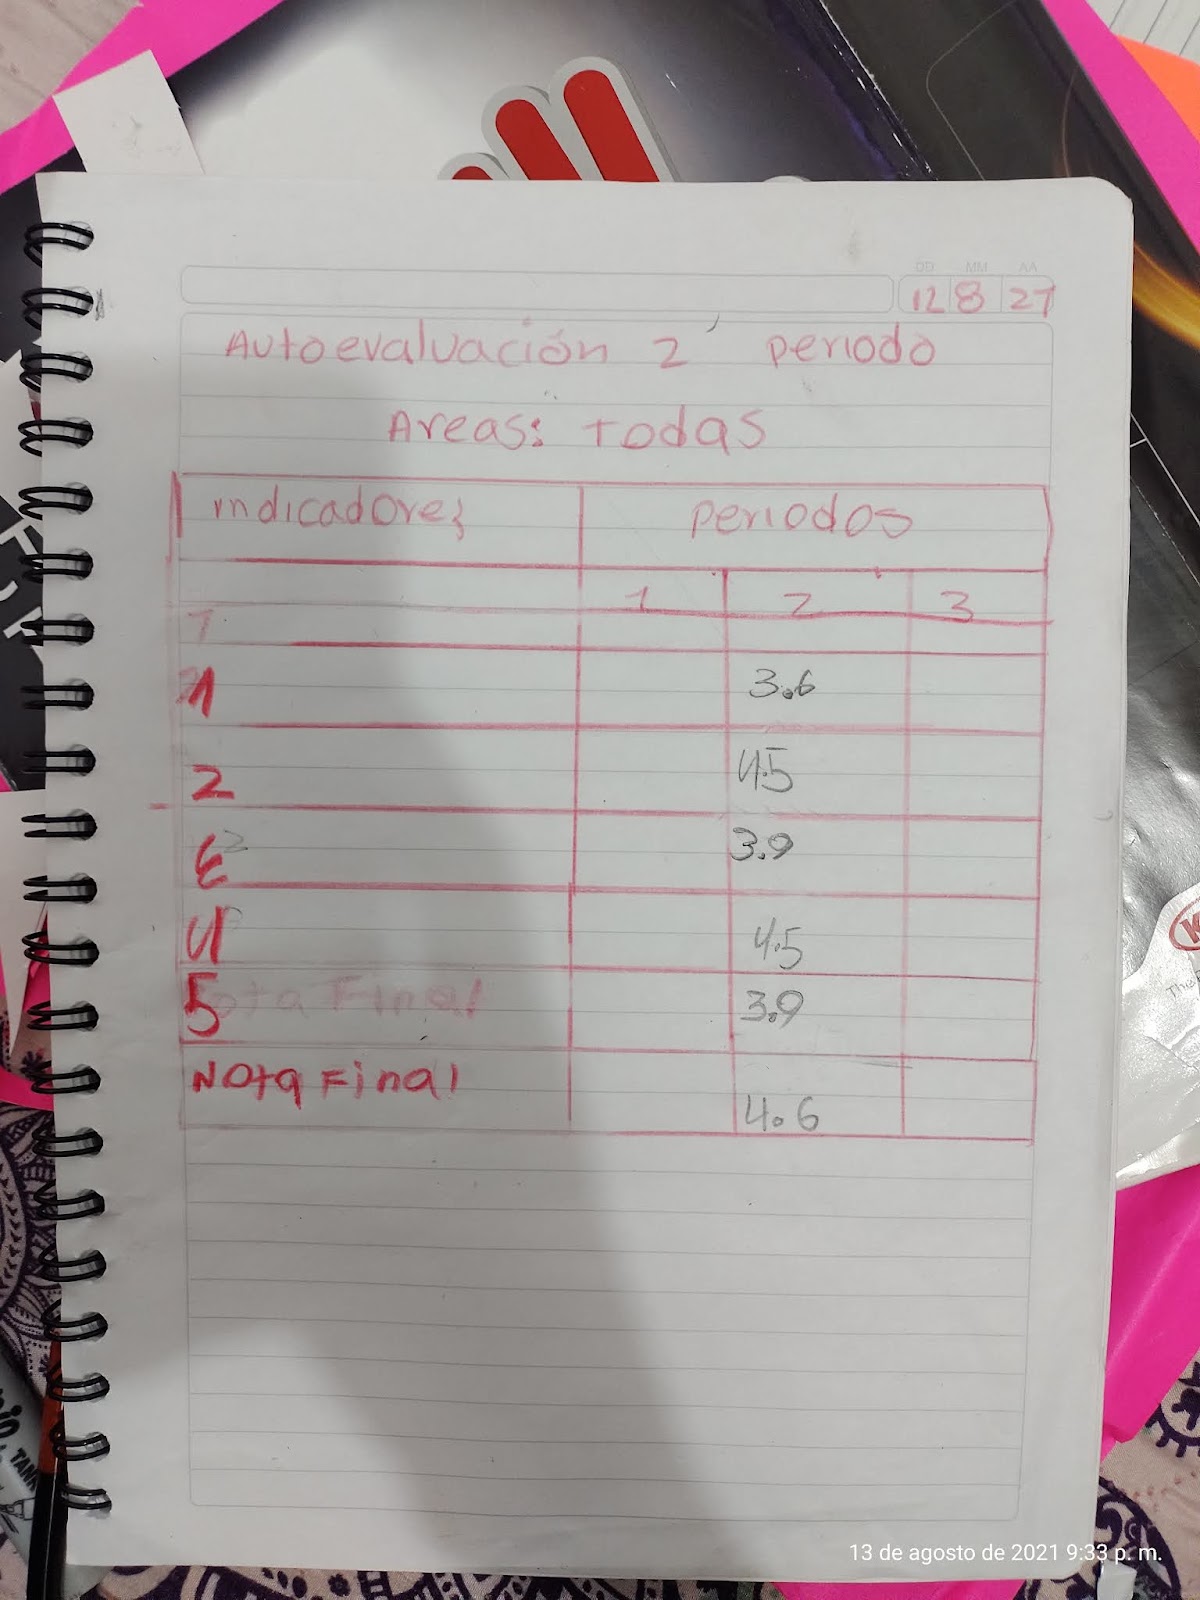 DD MM AA
12 8 21
Autoevaluación 2 periodo
Areas: Todas
indicadores periodos
1 2 3
1
1 3.6
2 4.5
3 3.9
4 4.5
5 Nota Final 3.9
Nota Final
4.6
13 de agosto de 2021 9:33 p. m.